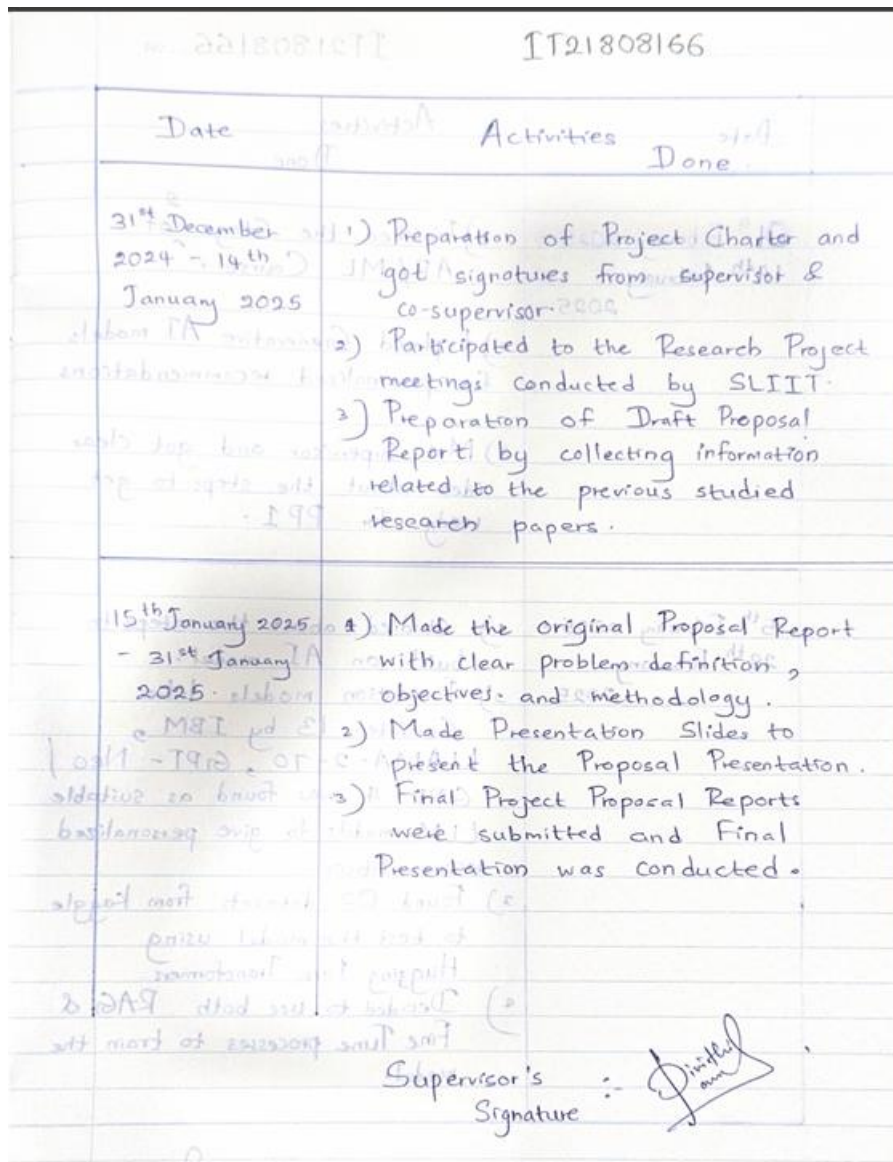 IT21808166
Date Activities Done
31st December 1) Preparation of Project Charter and
2024 - 14th got signatures from supervisor &
January 2025 co-supervisor.
2) Participated to the Research Project
meetings conducted by SLIIT.
3) Preparation of Draft Proposal
Report by collecting information
related to the previous studied
research papers.
15th January 2025 1) Made the original Proposal Report
- 31st January with clear problem definition,
2025. objectives. and methodology.
2) Made Presentation Slides to
present the Proposal Presentation.
3) Final Project Proposal Reports
were submitted and Final
Presentation was conducted.
Supervisor's :-
Signature